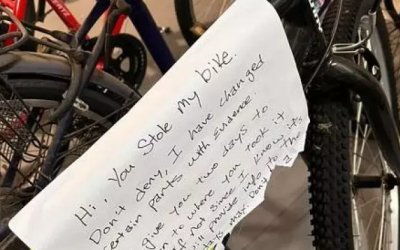 Hi, You Stole my bike.
Don't deny, I have changed
certain parts with evidence.
give you two days to
to where you took it
If not since I know it's
provide info to the